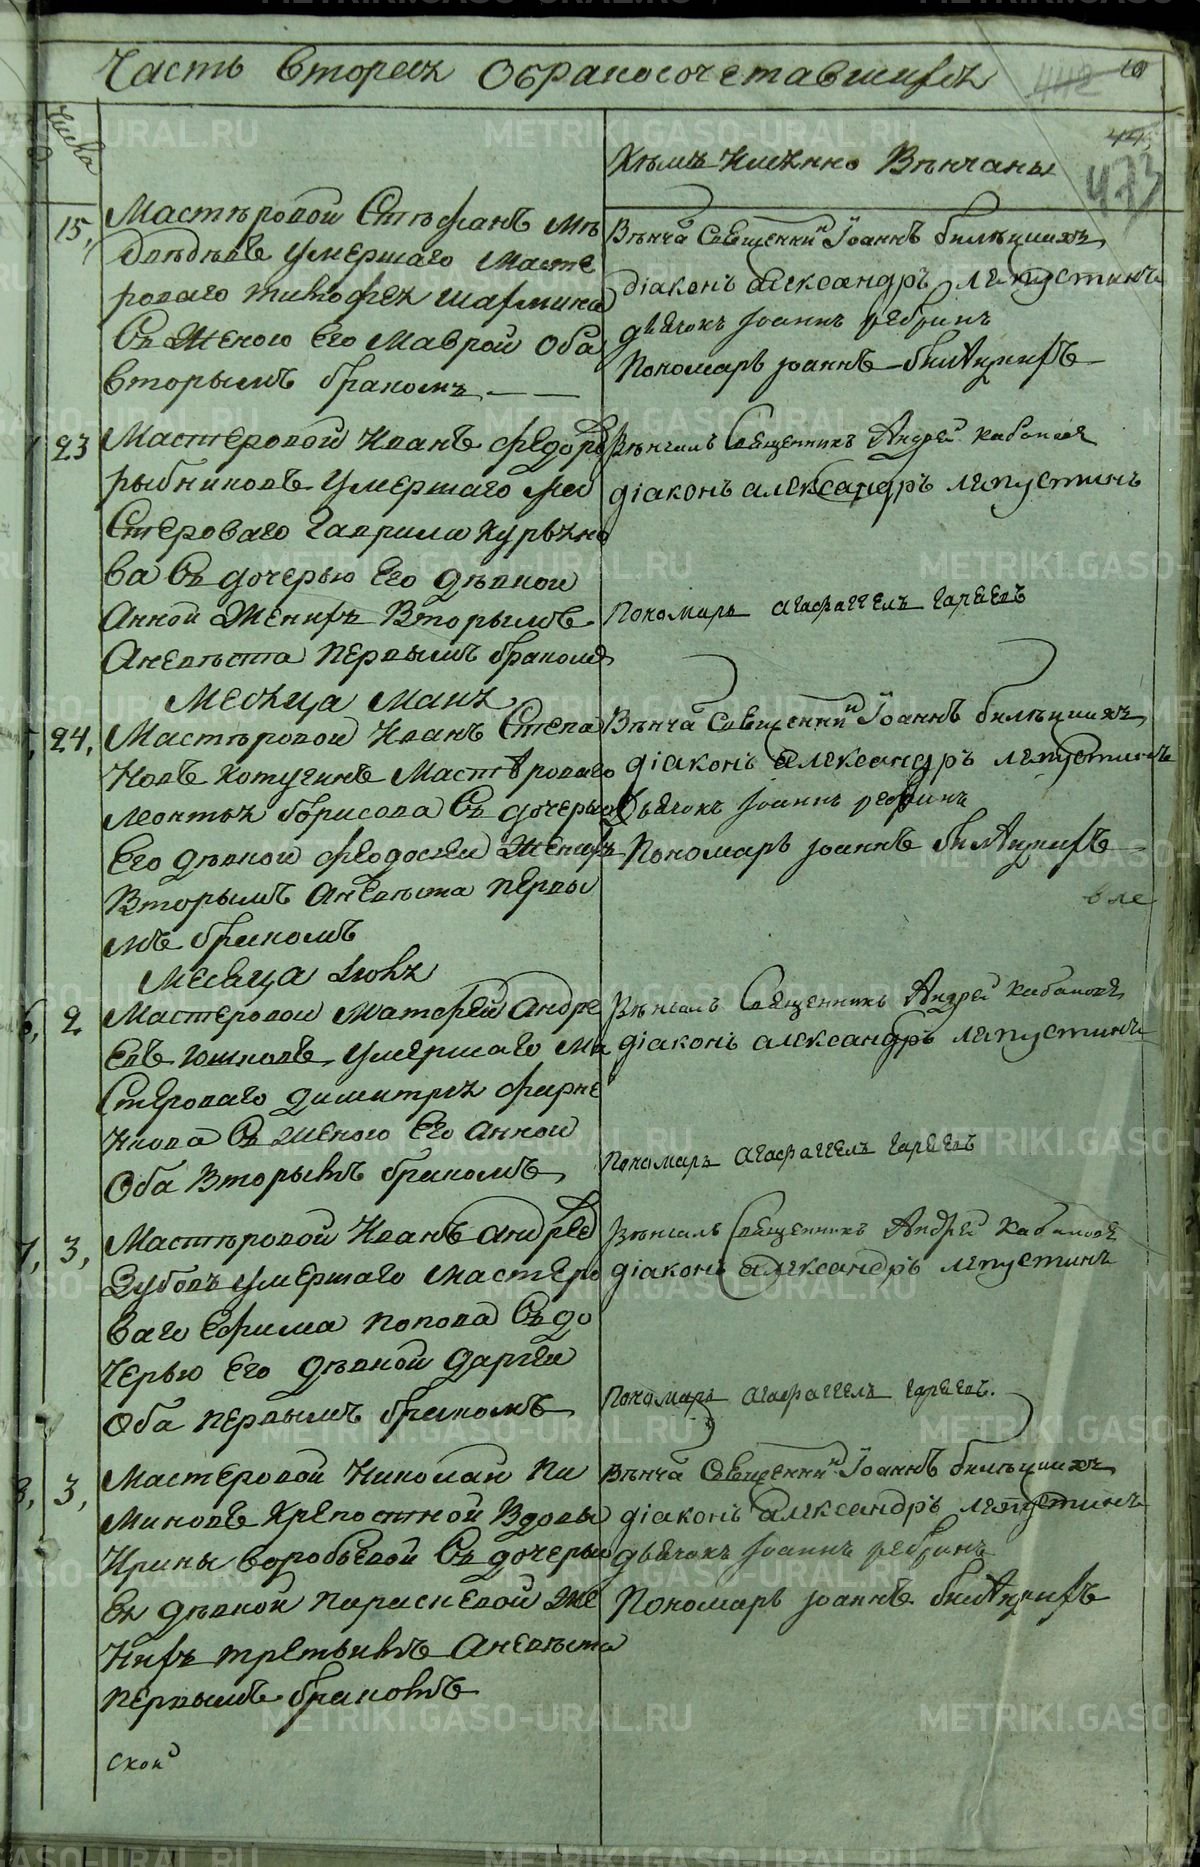 Часть вторая Обракосочетавшихся
442 10
443
473
Числа
Кѣмъ имянно Вѣнчаны
15,
Мастѣровой Стѣфанъ Мѣ
двѣдѣвъ умершаго масте
роваго тимофея
Съ женою Его Маврой оба
вторымъ бракомъ
Вѣнча Священникъ Iоаннъ
дiаконъ александръ лепустинъ
дьячокъ Iоаннъ ребринъ
Пономарь iоаннъ
23
Мастеровой Иванъ федоровъ
рыбниковъ умершаго ма
Стероваго Гаврила
ва Съ дочерью Его дѣвкой
Анной Женихъ Вторымъ
Аневѣста первымъ бракомъ
Вѣнчалъ Священникъ Андрей Кабаковъ
дiаконъ александръ лепустинъ
Пономарь агафаггелъ гареевъ
Месяца Маия
24,
Мастѣровой Иванъ Степа
новъ Котугинъ Мастѣроваго
леонтья борисова Съ дочерью
Его дѣвкой феодосьей Женихъ
Вторымъ Аневѣста первы
мъ бракомъ
Вѣнча Священникъ Iоаннъ
дiаконъ александръ лепустинъ
Дьячокъ Iоаннъ ребринъ
Пономарь iоаннъ
Месяца Июня
6, 2
Мастеровой Матфей Андре
евъ юшковъ умершаго ма
Стероваго димитрея
Съ женою Его анной
Оба Вторымъ бракомъ
Вѣнчалъ Священникъ Андрей Кабаковъ
дiаконъ александръ лепустинъ
Пономарь агафаггелъ гареевъ
7, 3,
Мастѣровой Иванъ андреев
Зубовъ умершаго мастеро
ваго Ефима попова Съ до
черью Его дѣвкой дарьей
Оба первымъ бракомъ
Вѣнчалъ Священникъ Андрей Кабаковъ
дiаконъ александръ лепустинъ
Пономарь агафаггелъ гареевъ.
8, 3,
Мастеровой Николай Пи
миновъ Крепостной Вдовы
Ирины воробьевой Съ дочерью
Ея дѣвкой параскевой Же
нихъ третьимъ Аневѣста
первымъ бракомъ
Вѣнча Священникъ Iоаннъ
дiаконъ александръ лепустинъ
дьячокъ Iоаннъ ребринъ
Пономарь iоаннъ
ской
METRIKI.GASO-URAL.RU